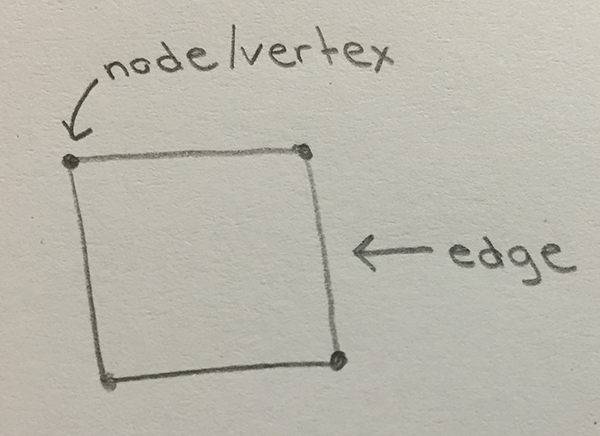 node/vertex
edge